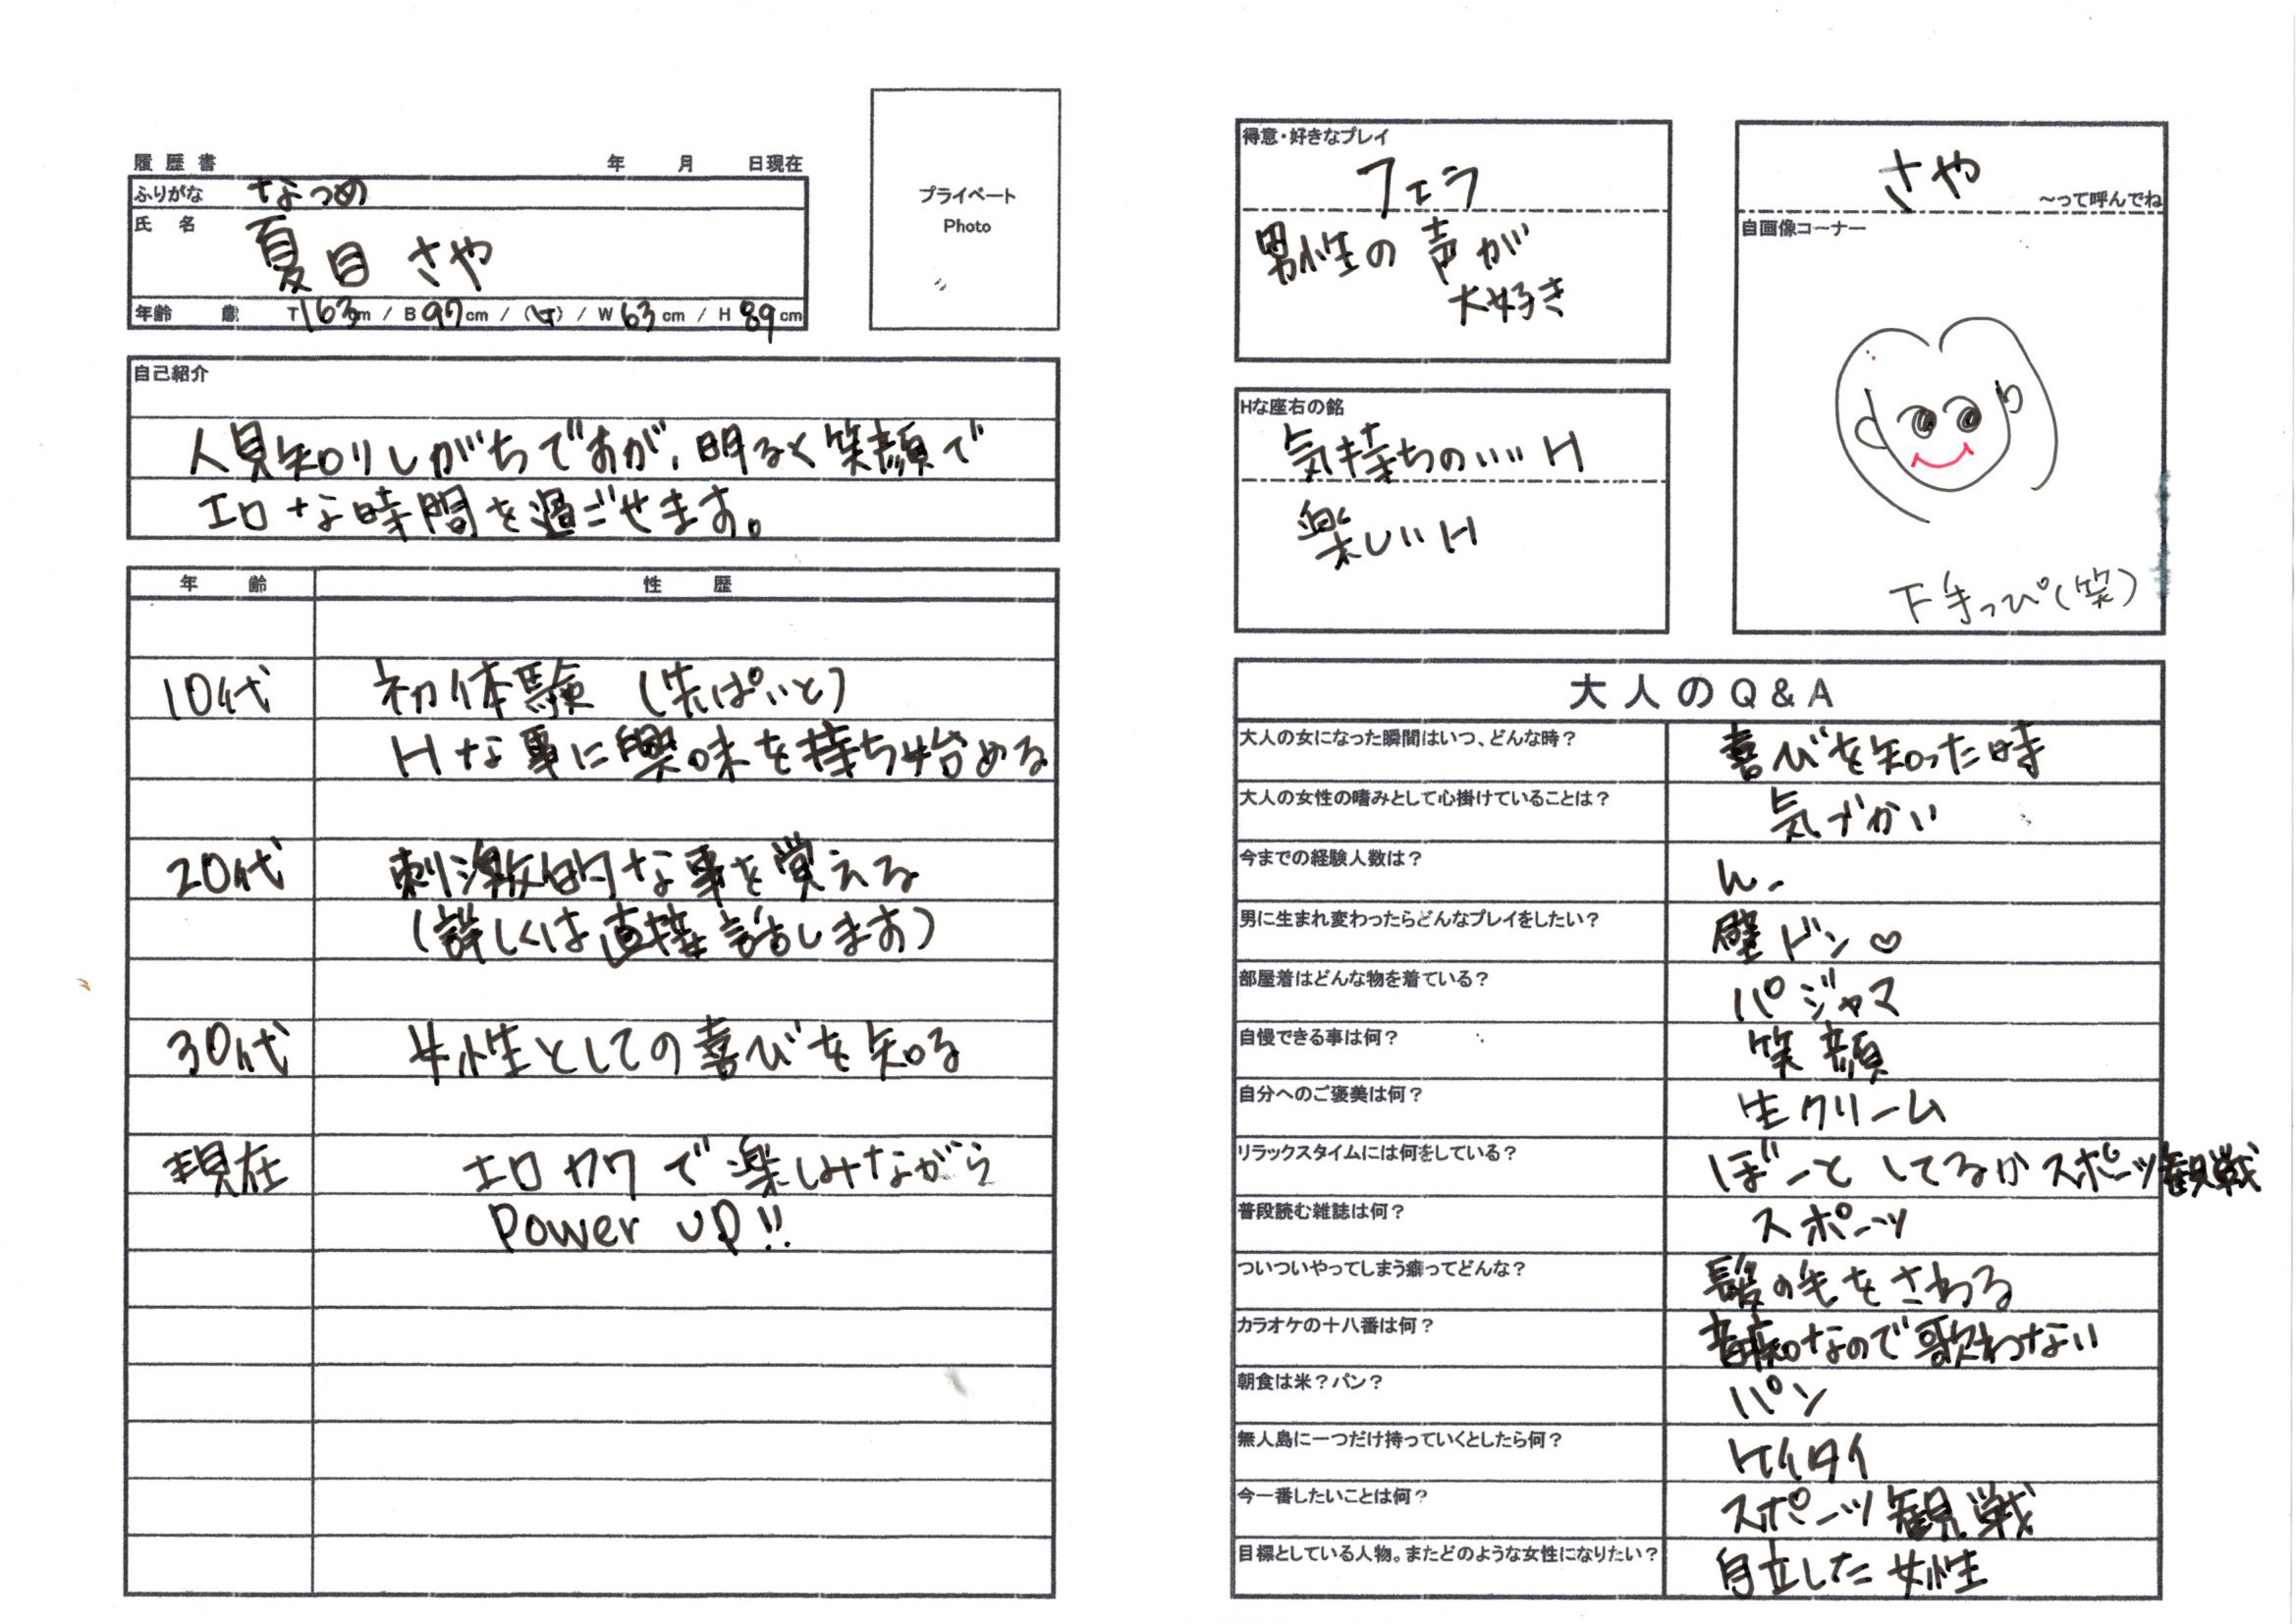 履歴書 年 月 日現在
ふりがな なつめ
氏名 夏目 さや
年齢 歳 T163cm / B97cm / ( ) / W63cm / H89cm
プライベート
Photo
自己紹介
人見知りしがちですが、明るく笑顔で
エロな時間を過ごせます。
年齢 性歴
10代 初体験 (先ぱいと)
Hな事に興味を持ち始める
20代 刺激的な事を覚える
(詳しくは直接話します)
30代 女性としての喜びを知る
現在 エロカワで楽しみながら
Power UP!!
得意・好きなプレイ
フェラ
男性の声が
大好き
Hな座右の銘
気持ちのいいH
楽しいH
さや
～って呼んでね
自画像コーナー
下手っぴ(笑)
大人のQ&A
大人の女になった瞬間はいつ、どんな時? 喜びを知った時
大人の女性の嗜みとして心掛けていることは? 気づかい
今までの経験人数は? ん-
男に生まれ変わったらどんなプレイをしたい? 壁ドン♡
部屋着はどんな物を着ている? パジャマ
自慢できる事は何? 笑顔
自分へのご褒美は何? 生クリーム
リラックスタイムには何をしている? ぼーとしてるかスポーツ観戦
普段読む雑誌は何? スポーツ
ついついやってしまう癖ってどんな? 髪の毛をさわる
カラオケの十八番は何? 音痴なので歌わない
朝食は米?パン? パン
無人島に一つだけ持っていくとしたら何? ケイタイ
今一番したいことは何? スポーツ観戦
目標としている人物。またどのような女性になりたい? 自立した女性